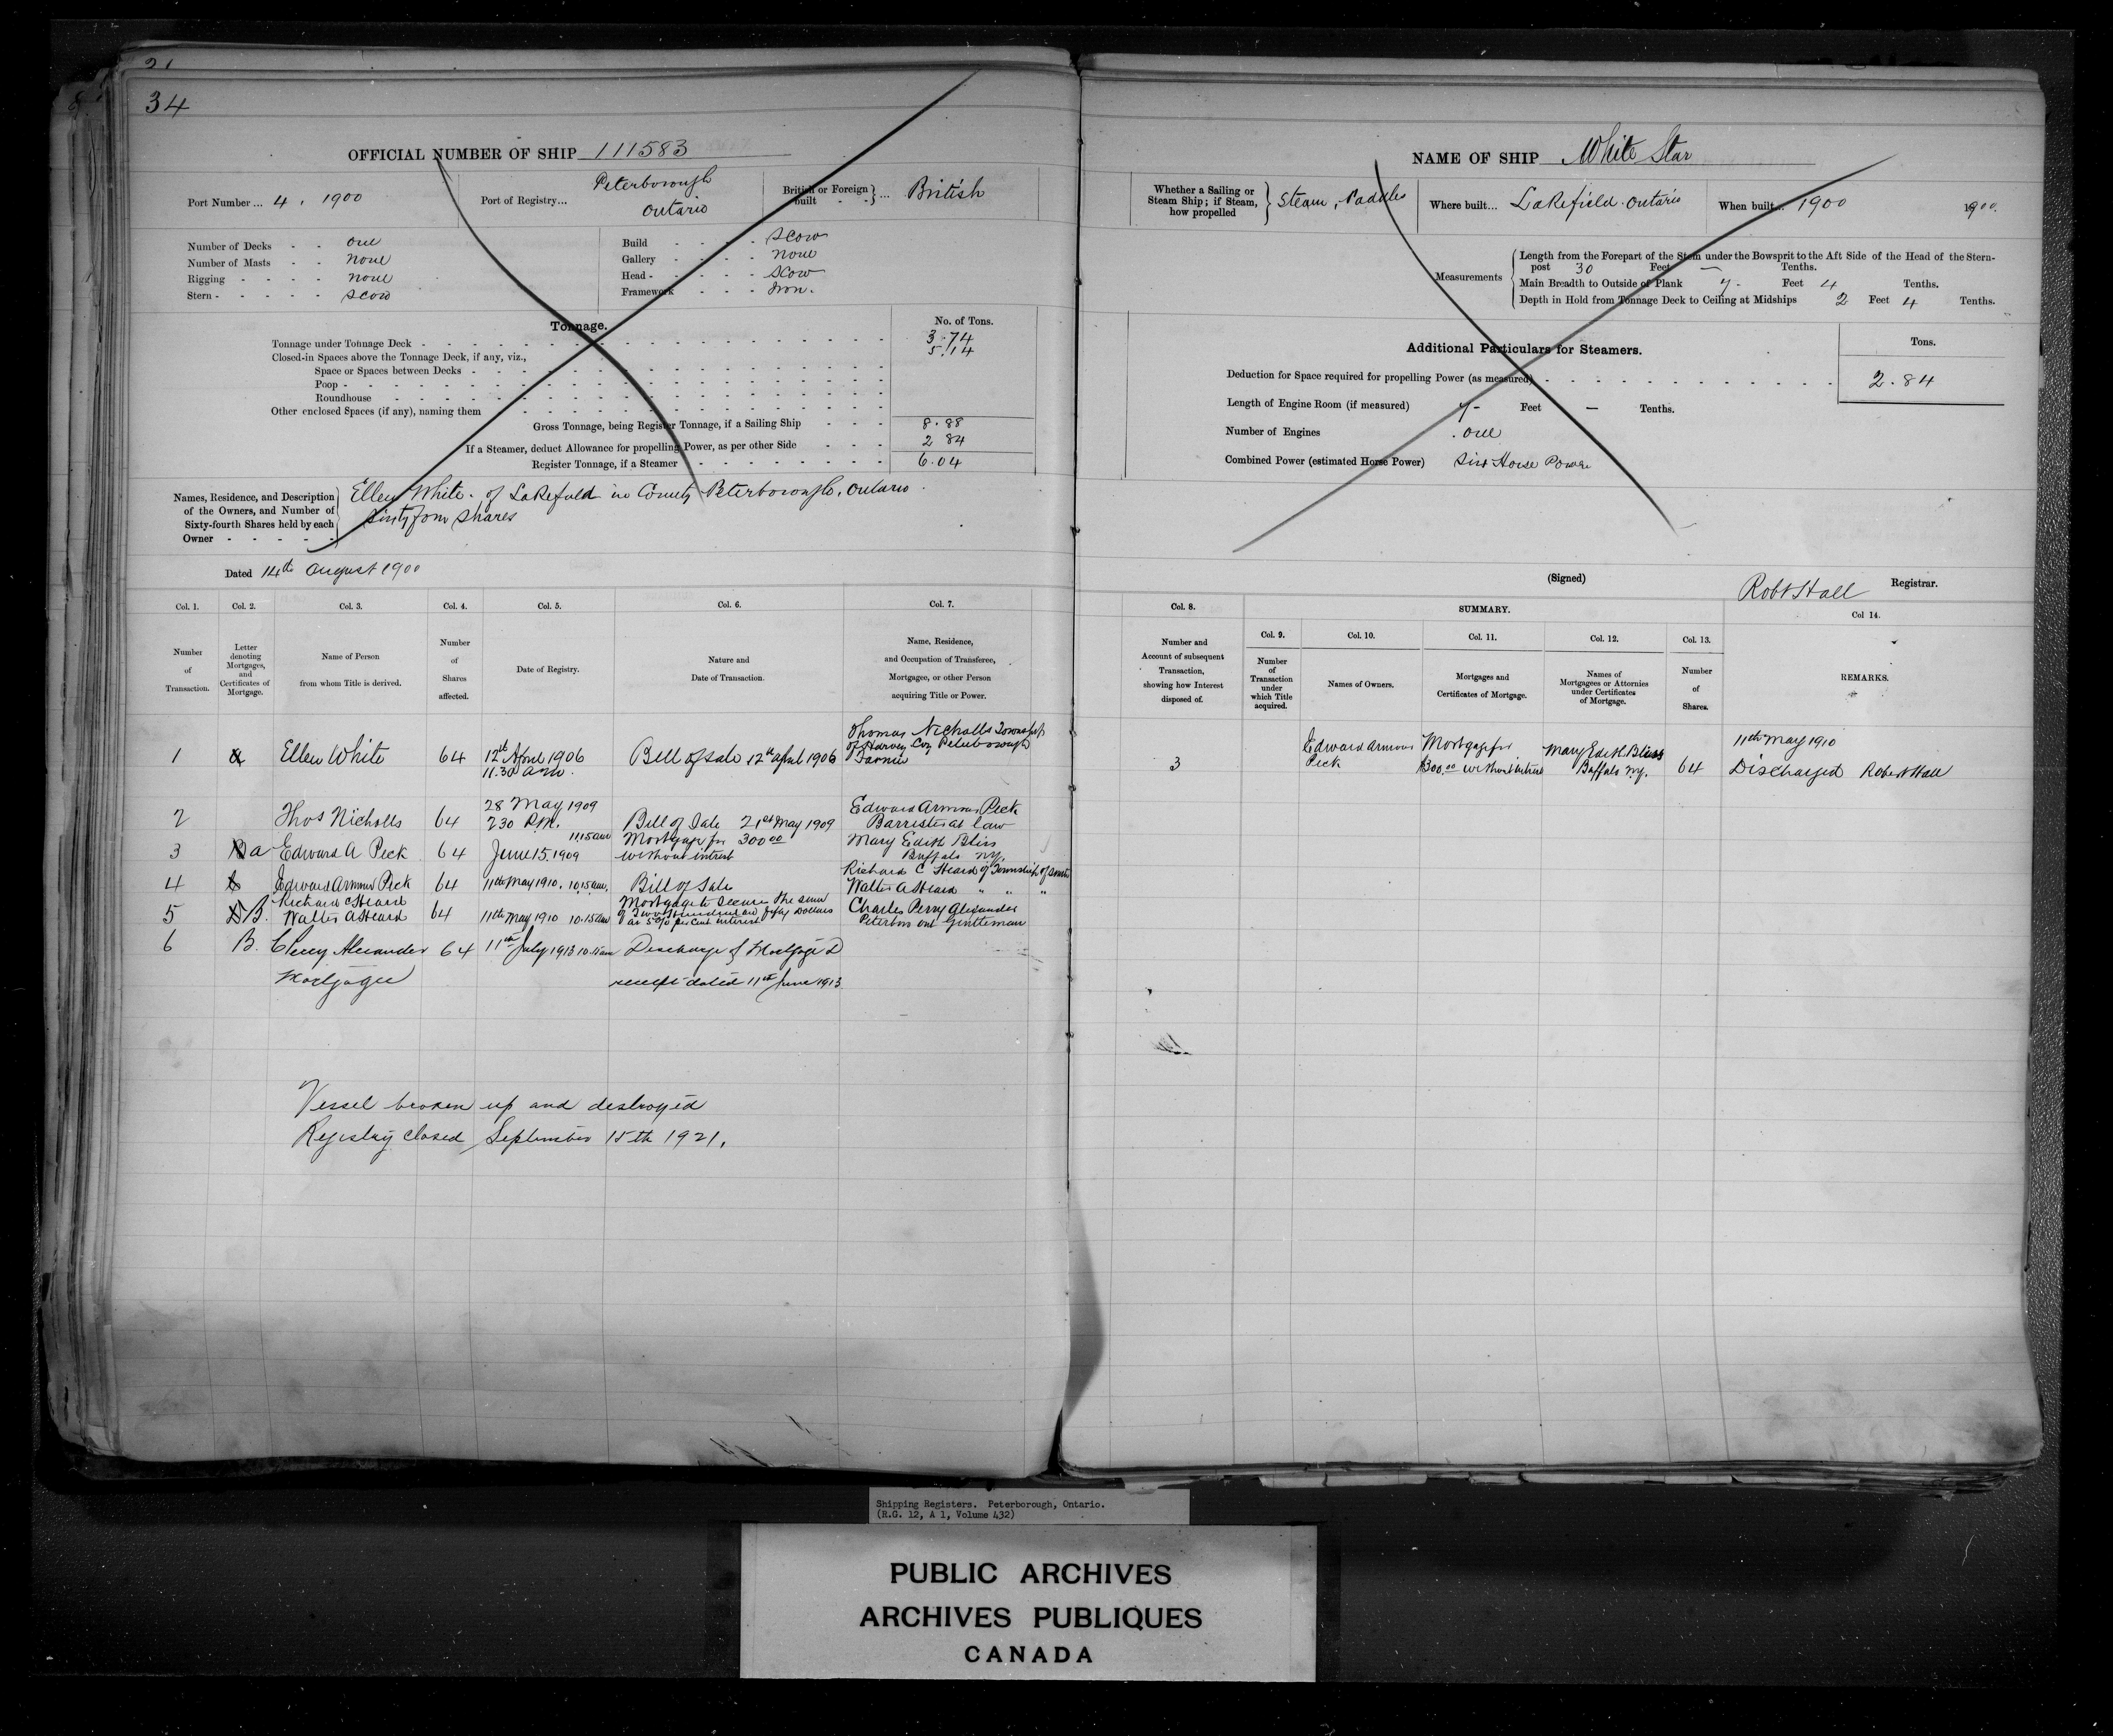 34
OFFICIAL NUMBER OF SHIP 111583
Port Number... 4, 1900
Port of Registry... Peterborough
Ontario
British or Foreign built - - } ... British
Number of Decks - - one
Number of Masts - - none
Rigging - - - none
Stern - - - - - scow
Build - - - - scow
Gallery - - - - none
Head - - - - - scow
Framework - - - Iron.
Tonnage.
No. of Tons.
Tonnage under Tonnage Deck - 3.74
Closed-in Spaces above the Tonnage Deck, if any, viz., 5.14
Space or Spaces between Decks -
Poop -
Roundhouse
Other enclosed Spaces (if any), naming them
Gross Tonnage, being Register Tonnage, if a Sailing Ship - - - 8.88
If a Steamer, deduct Allowance for propelling Power, as per other Side - - - 2 84
Register Tonnage, if a Steamer - 6.04
Names, Residence, and Description
of the Owners, and Number of
Sixty-fourth Shares held by each
Owner - - - - -
Ellen White. of Lakefield in County Peterborough, Ontario
Sixty four shares
Dated 14th August 1900
Col. 1. Col. 2. Col. 3. Col. 4. Col. 5. Col. 6. Col. 7.
Number of Transaction.
Letter denoting Mortgages, and Certificates of Mortgage.
Name of Person from whom Title is derived.
Number of Shares affected.
Date of Registry.
Nature and Date of Transaction.
Name, Residence, and Occupation of Transferee, Mortgagee, or other Person acquiring Title or Power.
1 a Ellen White 64 12th April 1906 11.30 a.m. Bill of Sale 12th April 1906 Thomas Nicholls Township of Harvey Co Peterborough Farmer
2 Thos Nicholls 64 28 May 1909 230 P.M. Bill of Sale 21st May 1909 Edward Armour Peck Barrister at law
3 a Edward A Peck 64 June 15. 1909 11.15 am Mortgage for 300 00 without interest Mary Edith Bliss Buffalo N.Y.
4 Edward Armour Peck 64 11th May 1910. 10.15 am. Bill of Sale Richard C Heard of Township of
Walter A Heard " " "
5 B. Richard C Heard Walter A Heard 64 11th May 1910 10.15 am Mortgage to secure the sum of Two Hundred and fifty Dollars at 5% per cent interest Charles Perry Alexander Peterboro Ont Gentleman
6 B. C Percy Alexander Mortgagee 64 11th July 1913 10.15 am Discharge of Mortgage D receipt dated 11th June 1913
Vessel broken up and destroyed
Registry closed September 15th 1921.
NAME OF SHIP White Star
Whether a Sailing or
Steam Ship; if Steam,
how propelled
} Steam, Paddles
Where built... Lakefield. Ontario
When built... 1900
1900.
Measurements
Length from the Forepart of the Stem under the Bowsprit to the Aft Side of the Head of the Stern-
post 30 Feet — Tenths.
Main Breadth to Outside of Plank 7 - Feet 4 Tenths.
Depth in Hold from Tonnage Deck to Ceiling at Midships 2 Feet 4 Tenths.
Additional Particulars for Steamers.
Tons.
Deduction for Space required for propelling Power (as measured) - 2.84
Length of Engine Room (if measured) 7- Feet — Tenths.
Number of Engines . one
Combined Power (estimated Horse Power) Six Horse Power
(Signed) Robt Hall Registrar.
Col. 8. SUMMARY. Col 14.
Col. 9. Col. 10. Col. 11. Col. 12. Col. 13.
Number and Account of subsequent Transaction, showing how Interest disposed of.
Number of Transaction under which Title acquired.
Names of Owners.
Mortgages and Certificates of Mortgage.
Names of Mortgagees or Attornies under Certificates of Mortgage.
Number of Shares.
REMARKS.
3 Edward Armour Peck Mortgage for $300.00 without interest Mary Edith Bliss Buffalo N.Y. 64 11th May 1910 Discharged Robert Hall
Shipping Registers. Peterborough, Ontario.
(R.G. 12, A 1, Volume 432)
PUBLIC ARCHIVES
ARCHIVES PUBLIQUES
CANADA